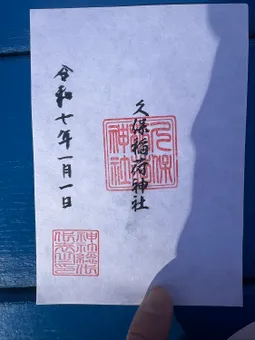 久保稲荷神社
令和七年一月一日
久保神社